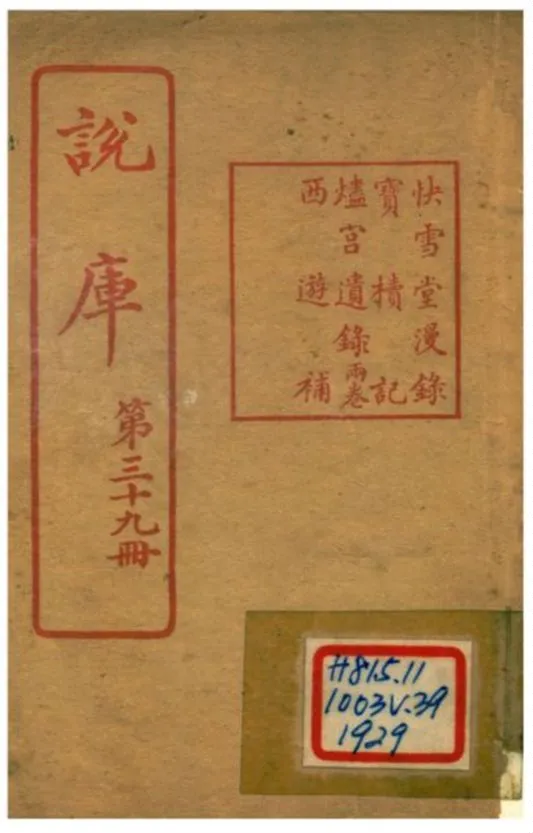 快雪堂漫錄
寶櫝記
燼宮遺錄兩卷
西遊補
說庫
第三十九冊
H815.11
1003V.39
1929